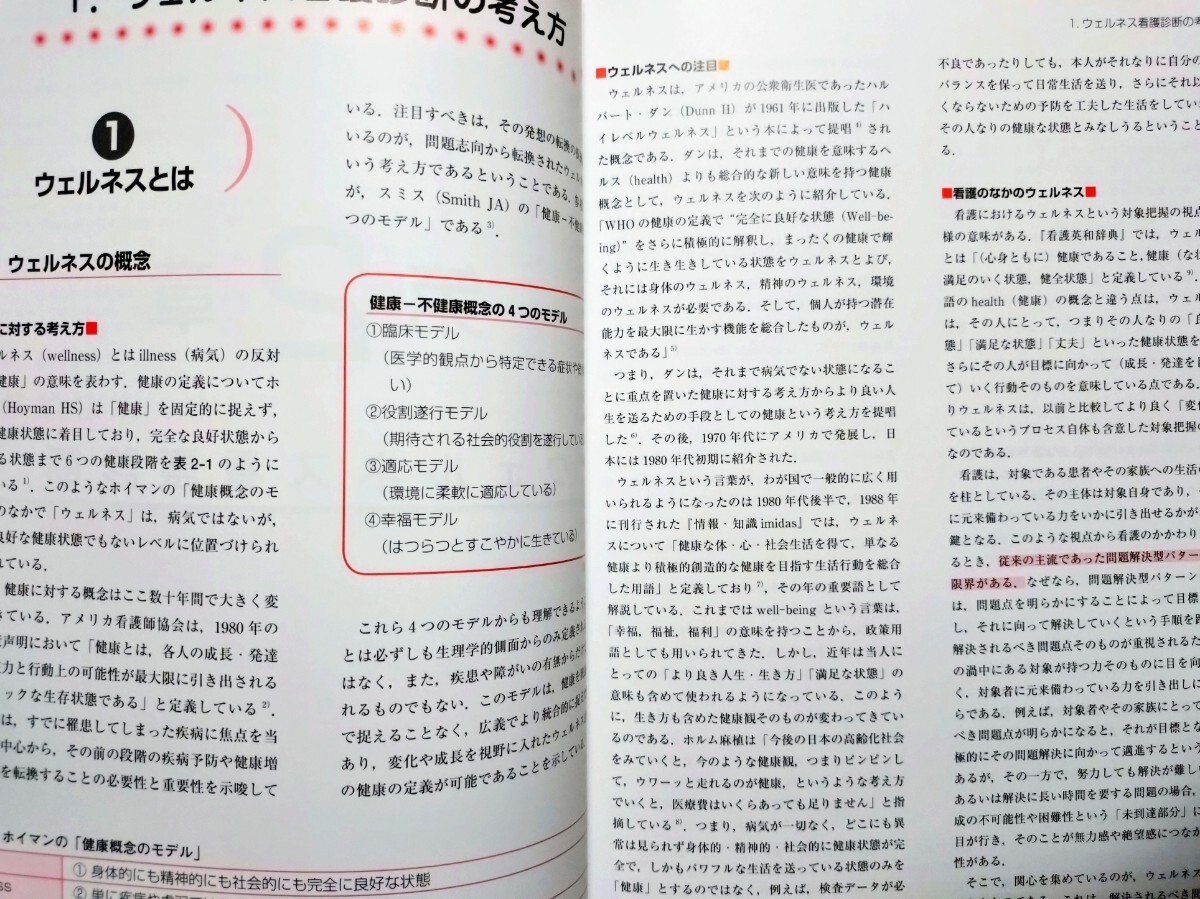 1．ウェルネス看護診断の考え方
1
ウェルネスとは
ウェルネスの概念
に対する考え方■
ルネス（wellness）とはillness（病気）の反対
健康」の意味を表わす．健康の定義についてホ
（Hoyman HS）は「健康」を固定的に捉えず，
健康状態に着目しており，完全な良好状態から
る状態まで6つの健康段階を表2-1のように
いる1)．このようなホイマンの「健康概念のモ
のなかで「ウェルネス」は，病気ではないが，
良好な健康状態でもないレベルに位置づけられ
れている．
健康に対する概念はここ数十年間で大きく変
きている．アメリカ看護師協会は，1980年の
声明において「健康とは，各人の成長・発達
力と行動上の可能性が最大限に引き出される
ックな生存状態である」と定義している2)．
は，すでに罹患してしまった疾病に焦点を当
中心から，その前の段階の疾病予防や健康増
を転換することの必要性と重要性を示唆して
いる．注目すべきは，その発想の転換の
いるのが，問題志向から転換されたウェル
いう考え方であるということである．
が，スミス（Smith JA）の「健康－不健
つのモデル」である3)．
健康－不健康概念の4つのモデル
①臨床モデル
（医学的観点から特定できる症状や
い）
②役割遂行モデル
（期待される社会的役割を遂行している
③適応モデル
（環境に柔軟に適応している）
④幸福モデル
（はつらつとすこやかに生きている）
これら4つのモデルからも理解できるよう
とは必ずしも生理学的側面からのみ定義され
はなく，また，疾患や障がいの有無からだけ
れるものでもない．このモデルは，健康を
で捉えることなく，広義でより統合的に捉え
あり，変化や成長を視野に入れたウェルネス
の健康の定義が可能であることを示している
ホイマンの「健康概念のモデル」
① 身体的にも精神的にも社会的にも完全に良好な状態
1．ウェルネス看護診断の考
■ウェルネスへの注目■
ウェルネスは，アメリカの公衆衛生医であったハル
バート・ダン（Dunn H）が1961年に出版した「ハ
イレベルウェルネス」という本によって提唱4)され
た概念である．ダンは，それまでの健康を意味するヘ
ルス（health）よりも総合的な新しい意味を持つ健康
概念として，ウェルネスを次のように紹介している．
「WHOの健康の定義で“完全に良好な状態（Well-be-
ing）”をさらに積極的に解釈し，まったくの健康で輝
くように生き生きしている状態をウェルネスとよび，
それには身体のウェルネス，精神のウェルネス，環境
のウェルネスが必要である．そして，個人が持つ潜在
能力を最大限に生かす機能を総合したものが，ウェル
ネスである」5)
つまり，ダンは，それまで病気でない状態になるこ
とに重点を置いた健康に対する考え方からより良い人
生を送るための手段としての健康という考え方を提唱
した6)．その後，1970年代にアメリカで発展し，日
本には1980年代初期に紹介された．
ウェルネスという言葉が，わが国で一般的に広く用
いられるようになったのは1980年代後半で，1988年
に刊行された『情報・知識imidas』では，ウェルネ
スについて「健康な体・心・社会生活を得て，単なる
健康より積極的創造的な健康を目指す生活行動を総合
した用語」と定義しており7)，その年の重要語として
解説している．これまではwell-beingという言葉は，
「幸福，福祉，福利」の意味を持つことから，政策用
語としても用いられてきた．しかし，近年は当人に
とっての「より良き人生・生き方」「満足な状態」の
意味も含めて使われるようになっている．このよう
に，生き方も含めた健康観そのものが変わってきてい
るのである．ホルム麻植は「今後の日本の高齢化社会
をみていくと，今のような健康観，つまりピンピンし
て，ウワーッと走れるのが健康，というような考え方
でいくと，医療費はいくらあっても足りません」と指
摘している8)．つまり，病気が一切なく，どこにも異
常は見られず身体的・精神的・社会的に健康状態が完
全で，しかもパワフルな生活を送っている状態のみを
「健康」とするのではなく，例えば，検査データが必
不良であったりしても，本人がそれなりに自分の
バランスを保って日常生活を送り，さらにそれ以
くならないための予防を工夫した生活をしてい
その人なりの健康な状態とみなしうるということ
る．
■看護のなかのウェルネス■
看護におけるウェルネスという対象把握の視点
様の意味がある．『看護英和辞典』では，ウェル
とは「（心身ともに）健康であること，健康（な状
満足のいく状態，健全状態」と定義している9)．
語のhealth（健康）の概念と違う点は，ウェル
は，その人にとって，つまりその人なりの「良
態」「満足な状態」「丈夫」といった健康状態を
さらにその人が目標に向かって（成長・発達を目
て）いく行動そのものを意味している点である．
りウェルネスは，以前と比較してより良く「変化
ているというプロセス自体も含意した対象把握の
なのである．
看護は，対象である患者やその家族への生活
を柱としている．その主体は対象自身であり，
に元来備わっている力をいかに引き出せるかが
鍵となる．このような視点から看護のかかわり
るとき，従来の主流であった問題解決型パター
限界がある．なぜなら，問題解決型パターン
は，問題点を明らかにすることによって目標
し，それに向って解決していくという手順を踏
解決されるべき問題点そのものが重視されるた
の渦中にある対象が持つ力そのものに目を向
く，対象者に元来備わっている力を引き出しに
らである．例えば，対象者やその家族にとって
べき問題点が明らかになると，それが目標とな
極的にその問題解決に向かって邁進するという
あるが，その一方で，努力しても解決が難しい
あるいは解決に長い時間を要する問題の場合，
成の不可能性や困難性という「未到達部分」に
目が行き，そのことが無力感や絶望感につなが
性がある．
そこで，関心を集めているのが，ウェルネス